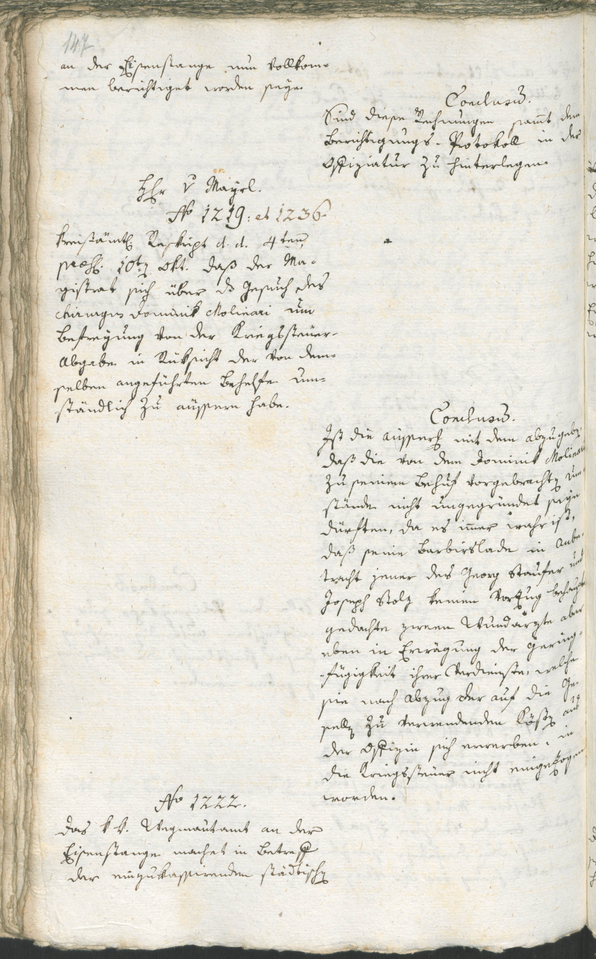 147
an der Eisenstange nun vollkom-
men berichtiget worden seye.
Conclusum.
Sind diese Rechnungen sammt dem
Berichtigungs-Protokoll in der
Offiziatur zu hinterlegen.
Hhr v Mayrl.
No 1219: et 1236
Kreisämtl. Reskript d. d. 4ten
praes. 10t Okt. daß der Ma-
gistrat sich über das Gesuch des
Chirurgus Dominik Molinari um
Befreyung von der Kriegssteuer-
Abgabe in Rüksicht der von dem-
selben angeführten Behelfe um-
ständlich zu äussern habe.
Conclusum.
Ist die mit dem abzugeben
daß die von dem Dominik Molinari
zu seinem Behuf vorgebrachten Um-
stände nicht ungegründet seyn
dürften, da es immer wahr ist,
daß seine Barbierslade in Anbe-
tracht jener des Georg Staufer und
Joseph Stolz keinen Vorzug
gedachte zween Wundärzte aber
eben in Erwägung der Gering-
fügigkeit ihrer Verdienste, welche
sie nach Abzug der auf die Ge-
sellen zu verwendenden Kösten aus
der Offizin sich erwerben, in
die Kriegssteuer nicht eingezogen
worden.
No 1222.
Das k. k. Wegmautamt an der
Eisenstange machet in Betreff
der einzukassirenden städtisch